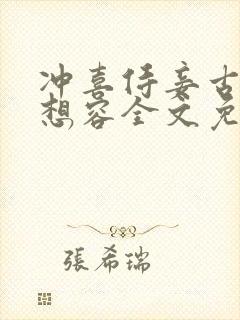 冲喜侍妾古
想容全文免
張希瑞